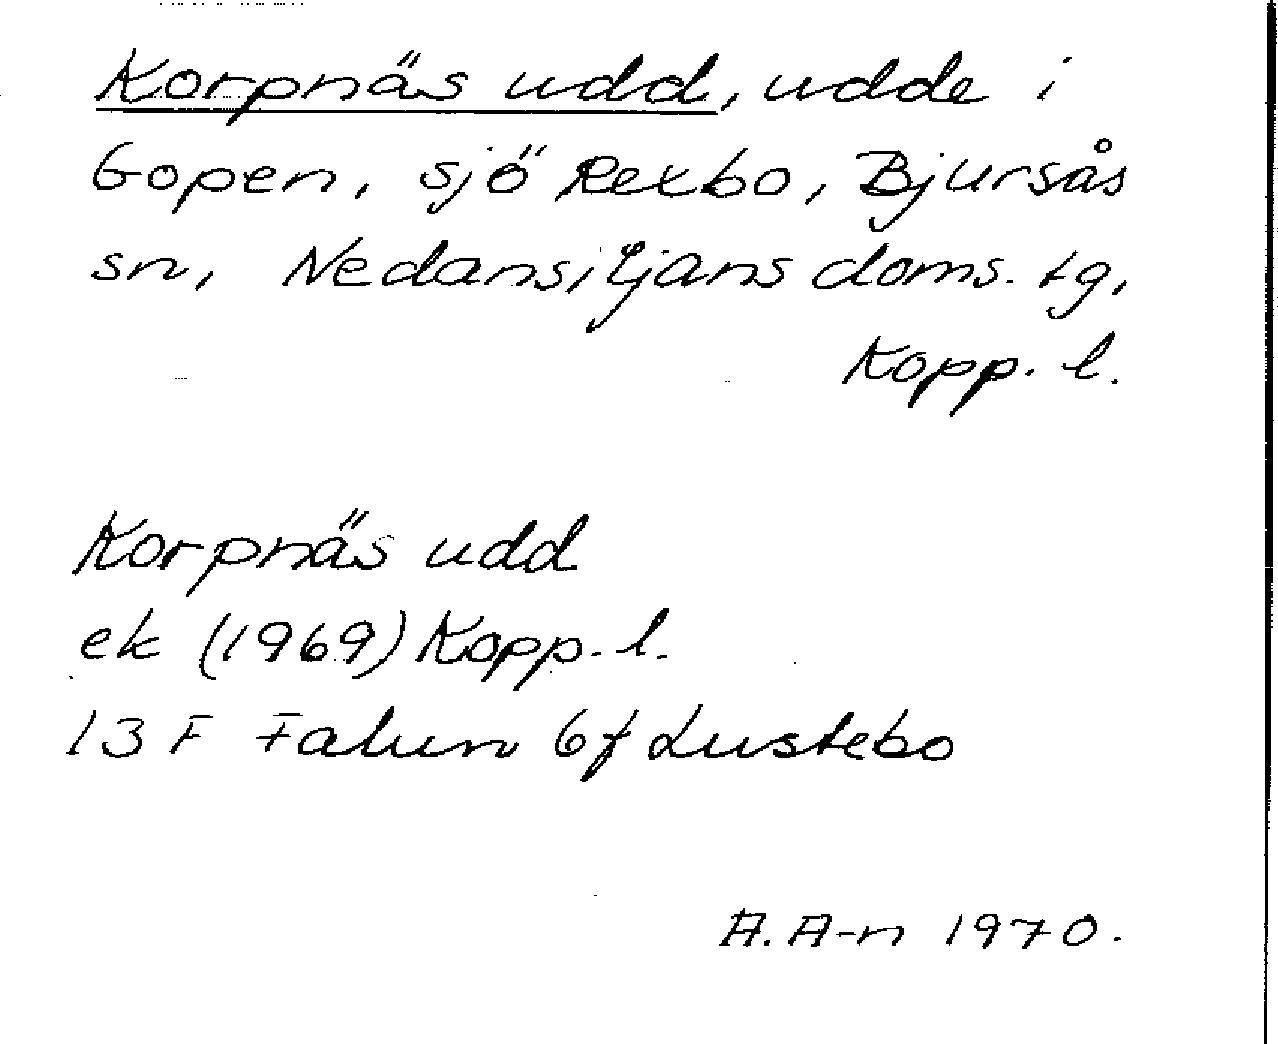 Korpnäs udd, udde i
Gopen, sjö Rexbo, Bjursås
sn, Nedansiljans doms. tg,
Kopp. l.
Korpnäs udd
ek (1969) Kopp. l.
13 F Falun 6f Lustebo
A. A-n 1970.